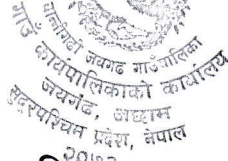 पानीगढी जयगढ गाउँपालिका
गाउँ कार्यपालिकाको कार्यालय
जयगढ, अछाम
सुदूरपश्चिम प्रदेश, नेपाल
२०७३